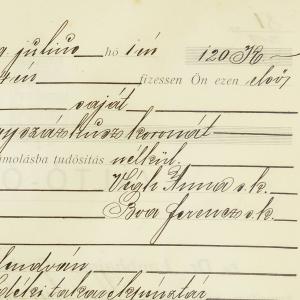 julius hó 1 én 120 K
én fizessen Ön ezen első
saját
száz husz koronát
ámolásba tudósítás nélkül.
Végh Anna s.k.
Boa Ferencz s.k.
lendván
déki takarékpénztár